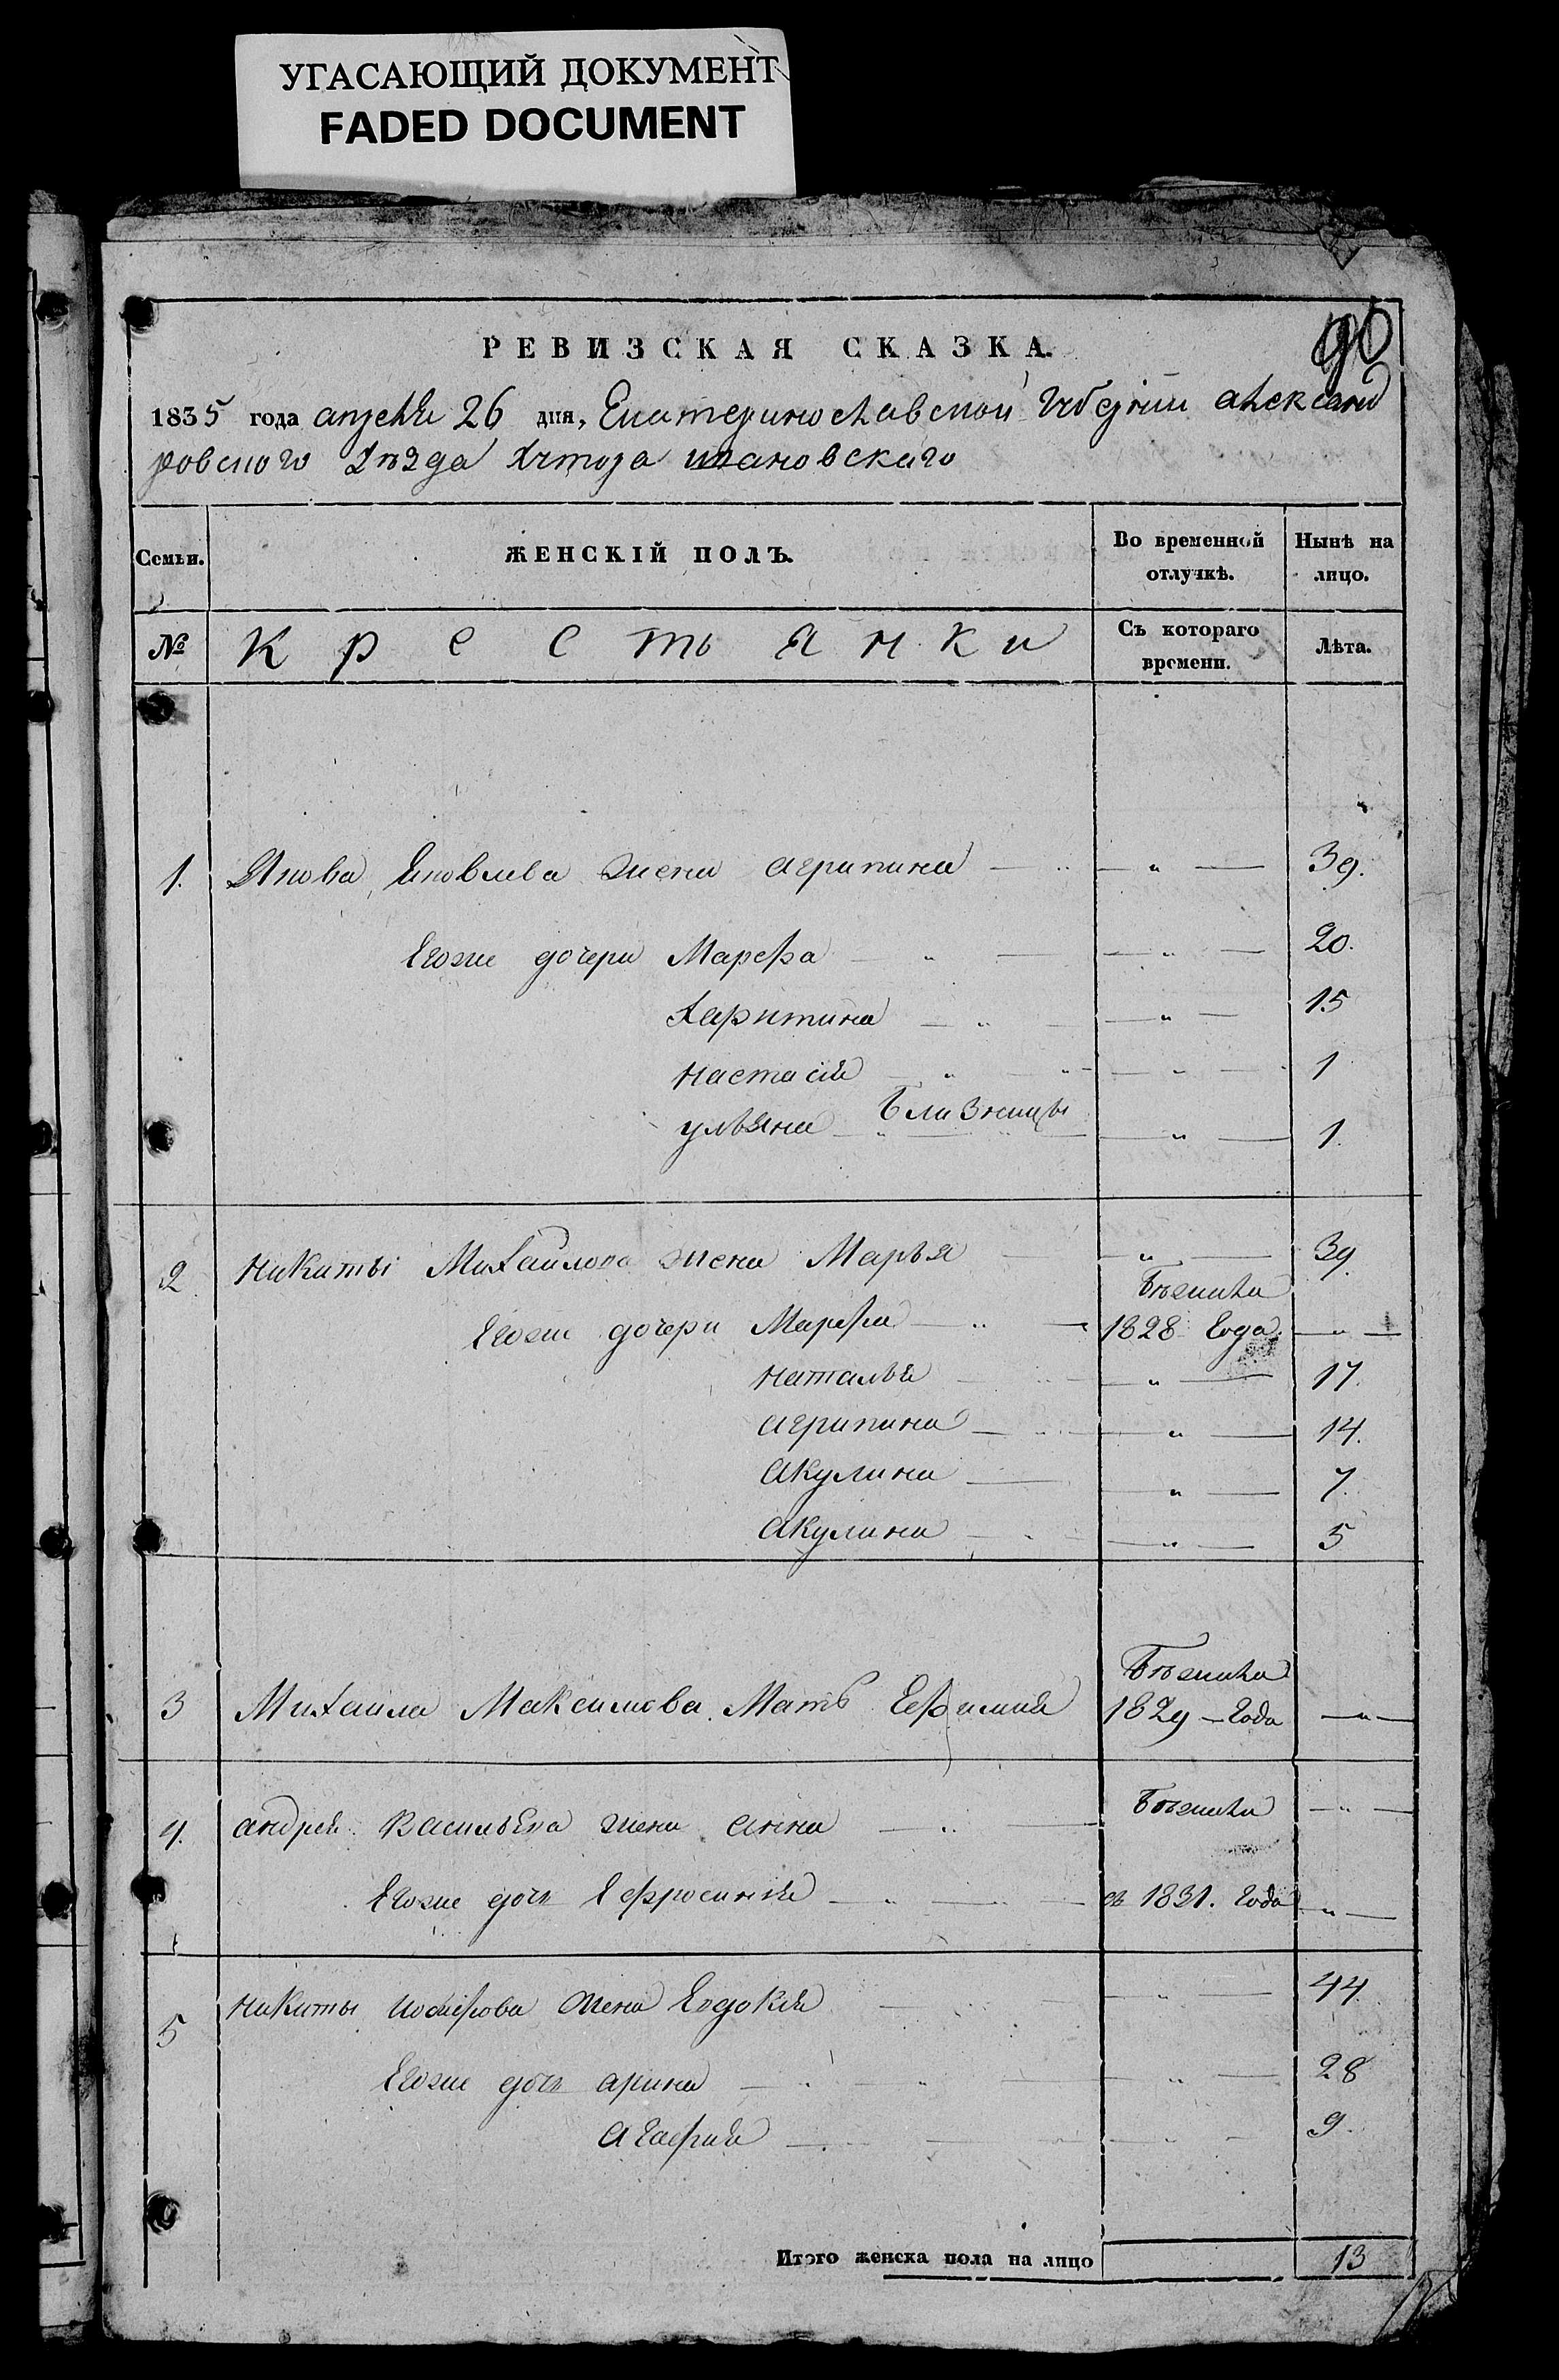 УГАСАЮЩИЙ ДОКУМЕНТ
FADED DOCUMENT
90
РЕВИЗСКАЯ СКАЗКА.
1835 года апреля 26 дня, Екатеринославской Губернии александ
ровского уезда хутора ивановскаго
Семьи. ЖЕНСКІЙ ПОЛЪ. Во временной отлучкѣ. Нынѣ на лицо.
№ Крестьянки Съ котораго времени. Лѣта.
1. Якова Яковлева жена агрипина — " — 39.
Егоже дочери Марефа — " — 20.
Харитина — " — 15
настасія — " — 1
ульяна близницы — " — 1.
2 никиты Михайлова жена Марья — " — 39.
Егоже дочери Марефа — Бѣжала 1828 Года — " —
наталья — " — 17.
агрипина — " — 14.
акулина — " — 7.
акулина — " — 5
3 Михайла Максимова Мать Ефимия Бѣжала 1829 – Года — " —
4. андрея Васильева жена анна — Бѣжала — " —
Егоже дочь Ефросиния — съ 1831. Года — " —
5 никиты иосифова жена Евдокия — " — 44
Егоже дочь арина — " — 28
агафия — " — 9.
Итого женска пола на лицо 13